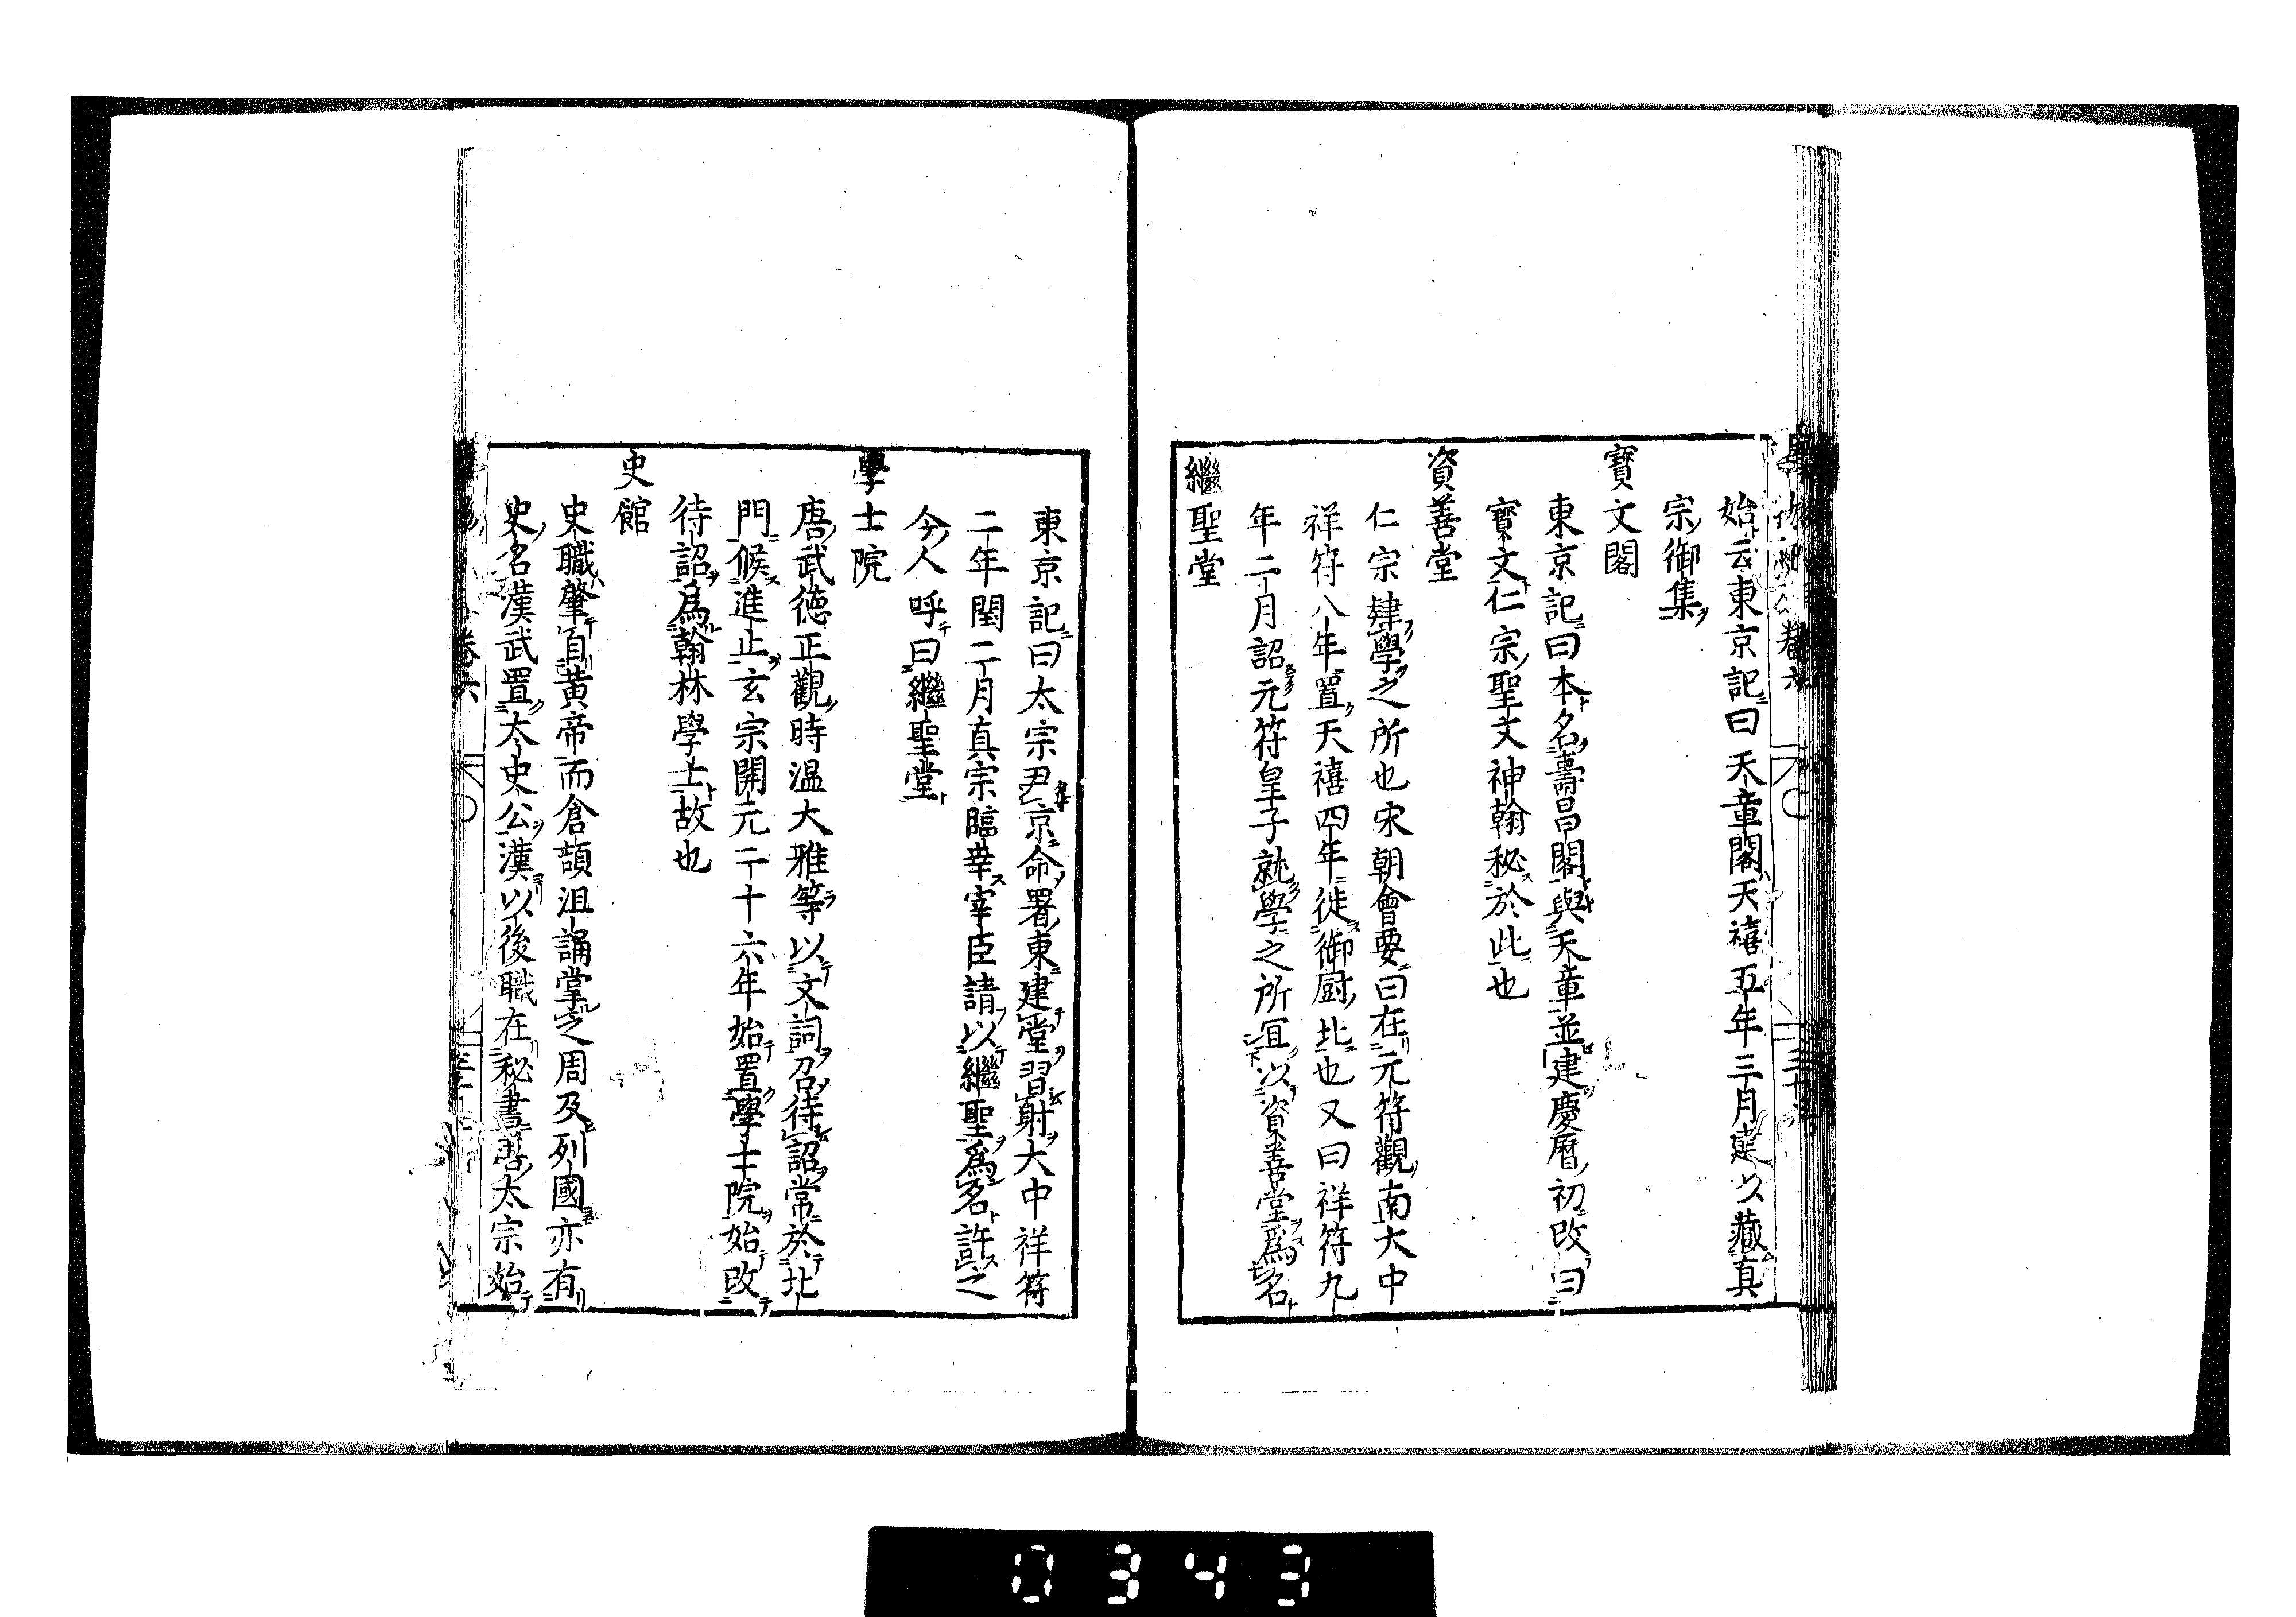 始云東京記曰天章閣天禧五年三月建以藏真
宗御集
寶文閣
東京記曰本名壽昌閣與天章並建慶曆初改曰
寶文仁宗聖文神翰秘於此也
資善堂
仁宗肄學之所也宋朝會要曰在元符觀南大中
祥符八年置天禧四年徙御厨北也又曰祥符九
年二月詔元符皇子就學之所冝以資善堂為名
繼聖堂
東京記曰太宗尹京命署東建堂習射大中祥符
二年閏二月真宗臨幸宰臣請以繼聖為名許之
今人呼曰繼聖堂
學士院
唐武德正觀時温大雅等以文詞召待詔常於北
門候進止玄宗開元二十六年始置學士院始改
待詔為翰林學士故也
史館
史職肇自黃帝而倉頡沮誦掌之周及列國亦有
史名漢武置太史公漢以後職在秘書唐太宗始
卷六
0343